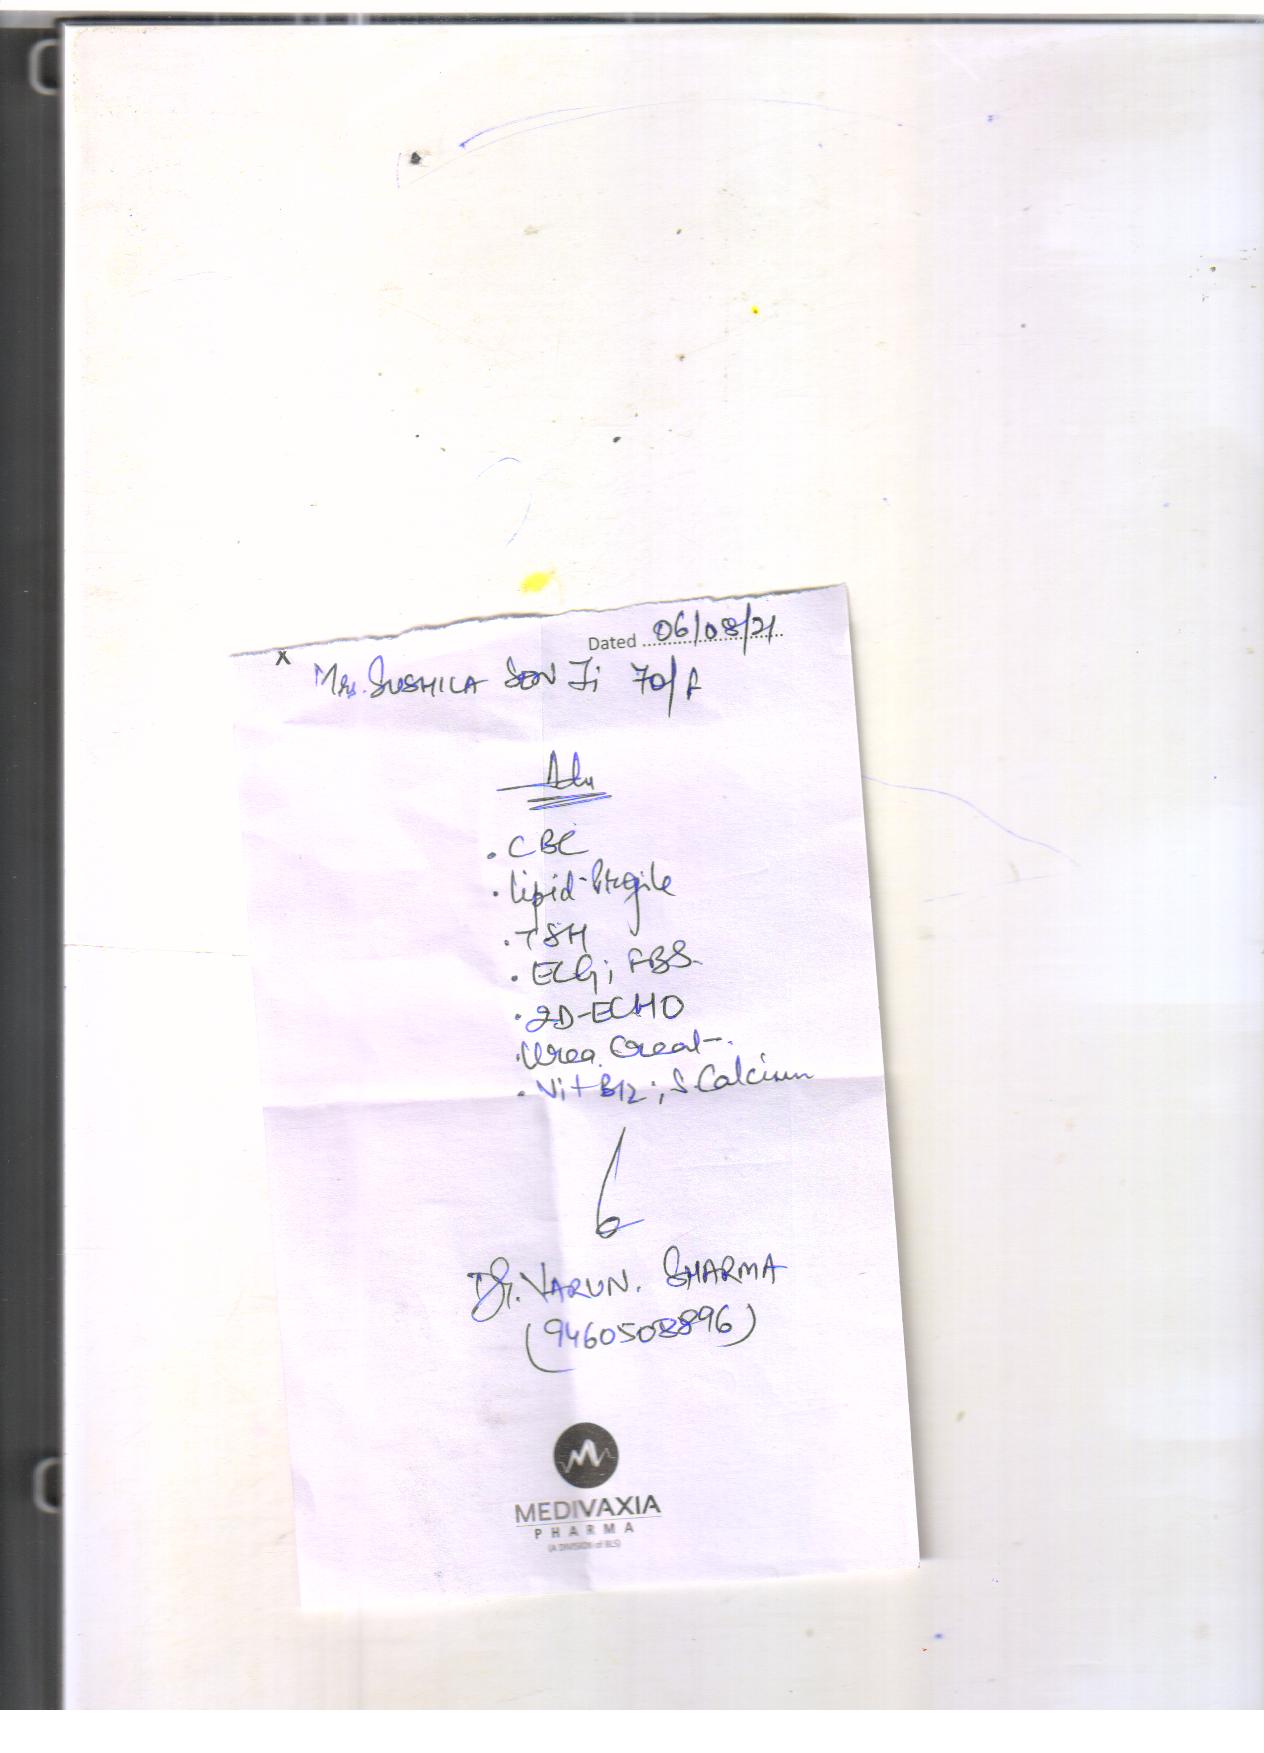 Dated 06/08/21
x
Mrs. SUSHILA SEN Ji 70/F
Adv
. CBC
. Lipid-Profile
. TSH
. ECG; FBS
. 2D-ECHO
. Urea Creat-.
. Vit B12; S. Calcium
Dr. VARUN. SHARMA
(9460508896)
MEDIVAXIA
PHARMA
(A DIVISION of BLS)